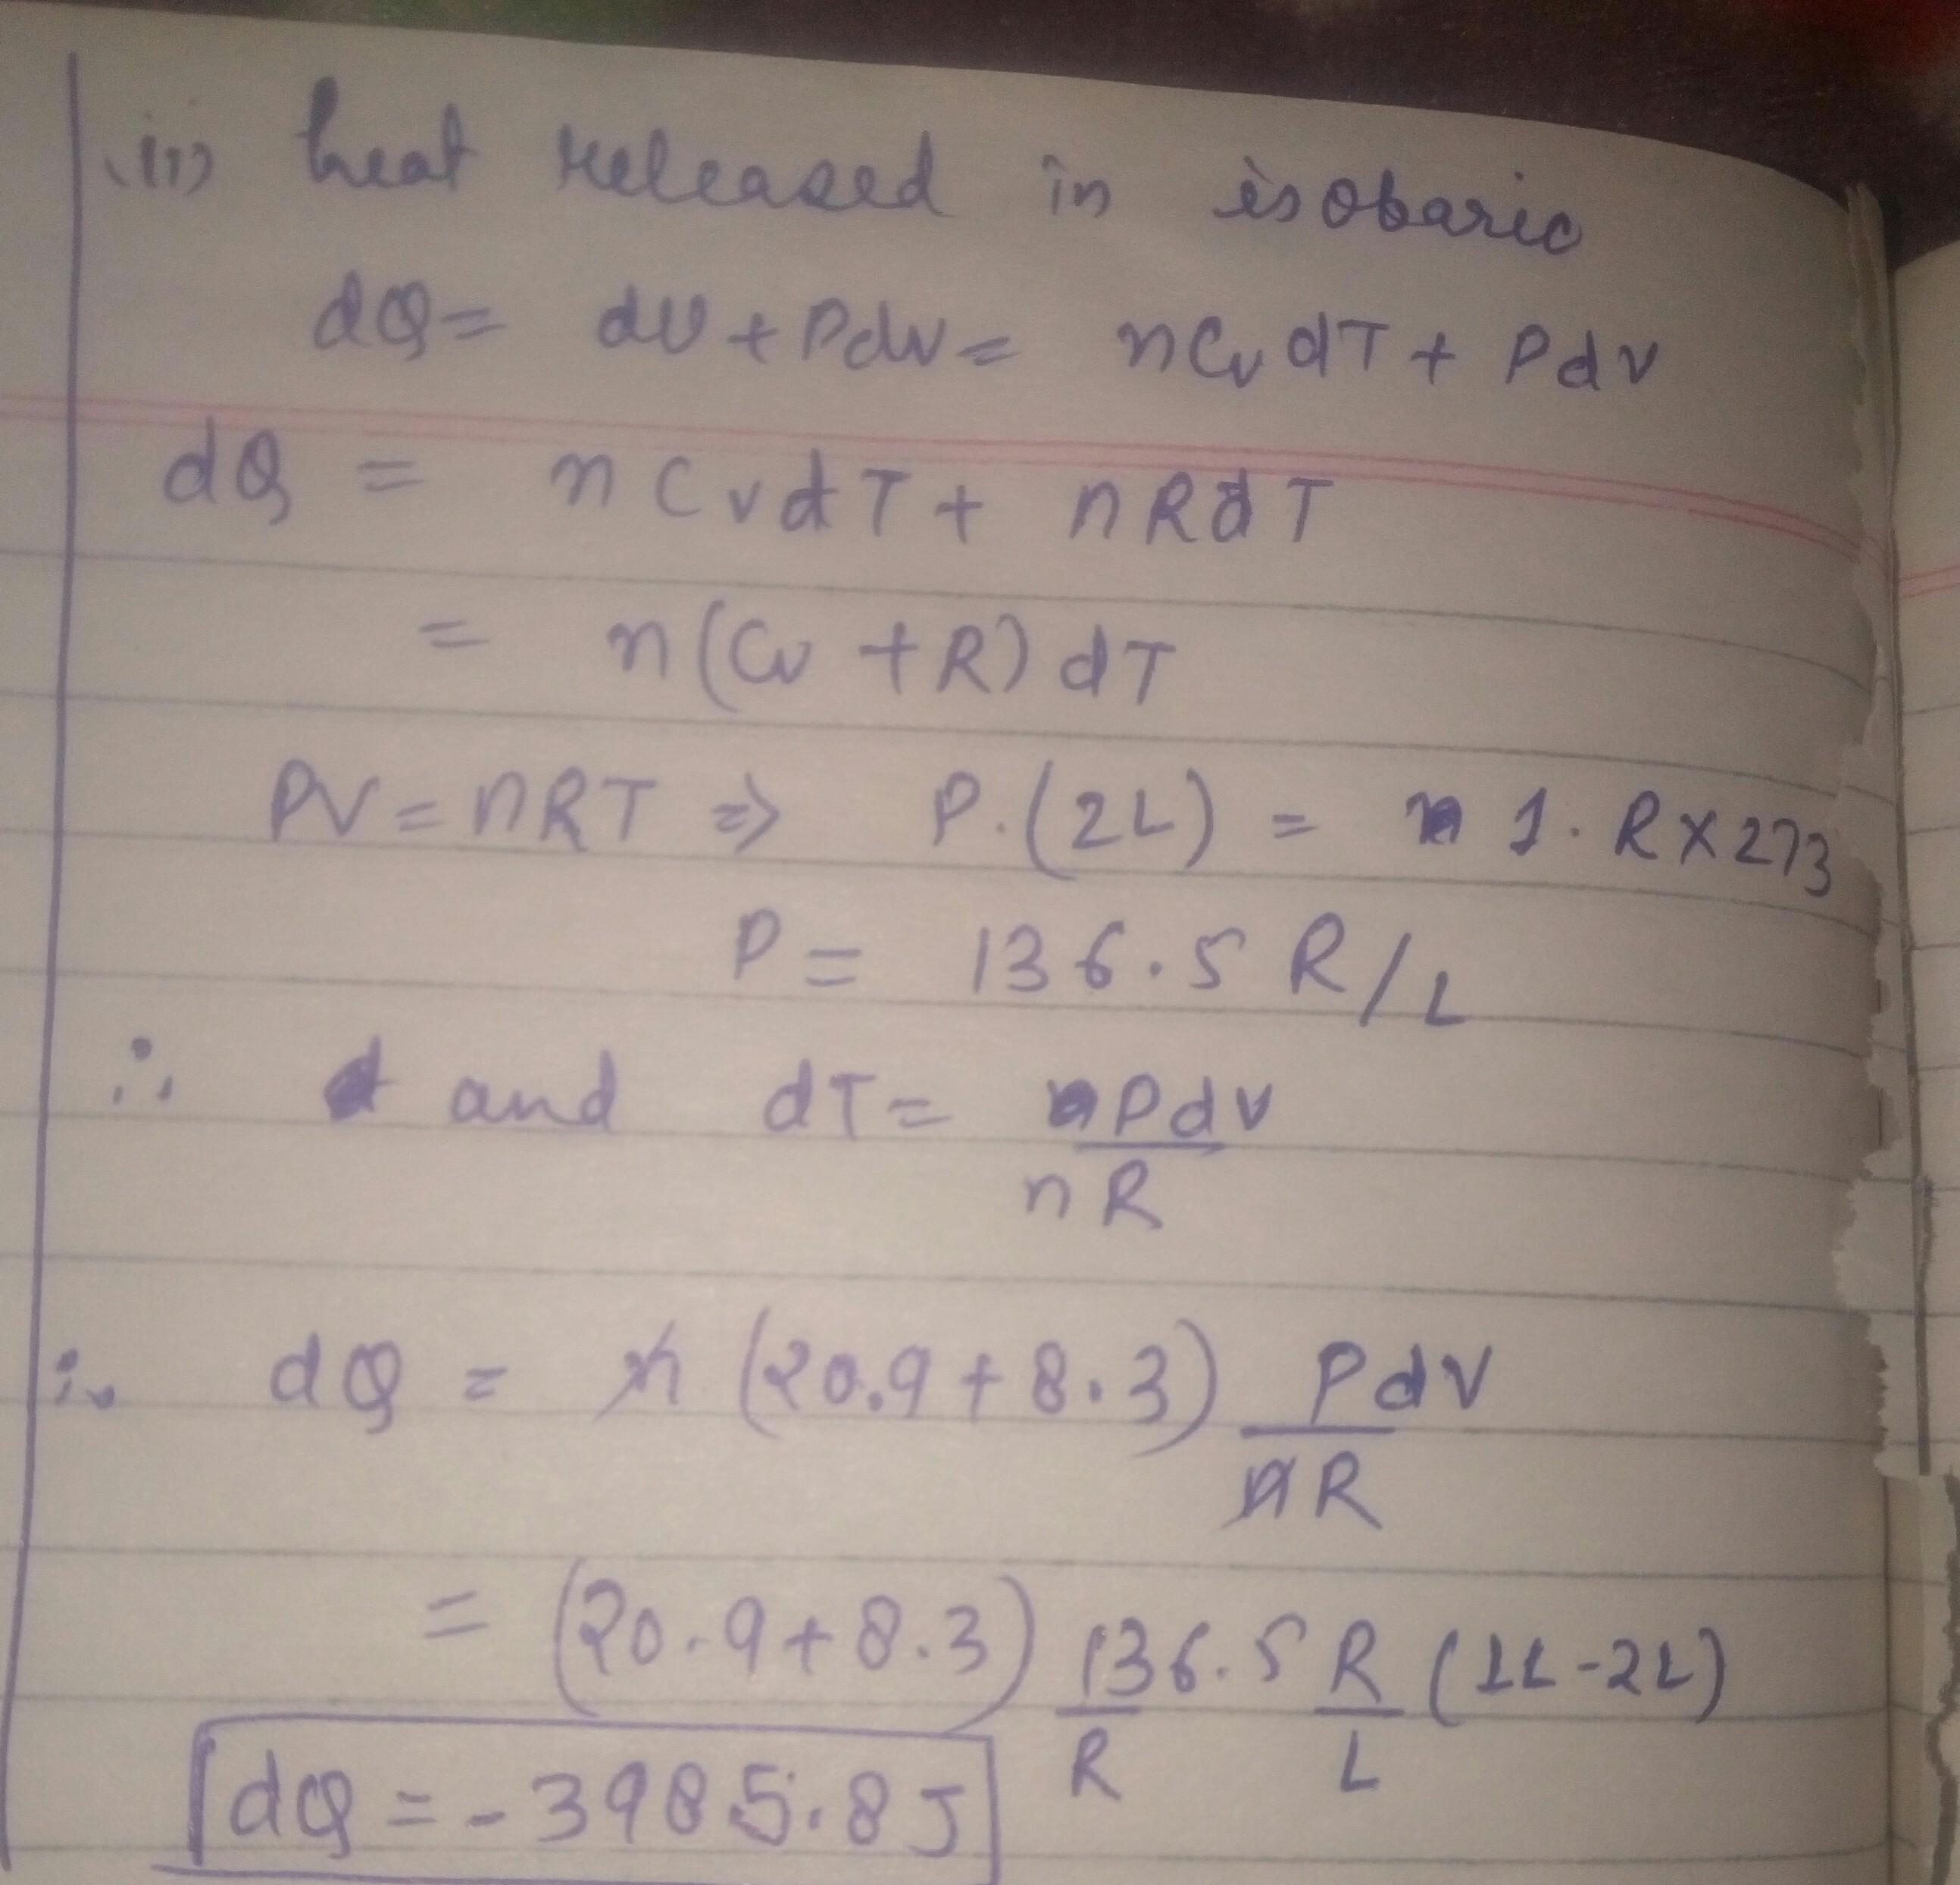 (ii) heat released in isobaric
dQ = dU + Pdv = nCv dT + Pdv
dQ = nCvdT + nRdT
= n(Cv + R) dT
PV = nRT ⇒ P.(2L) = 1. R×273
P = 136.5 R/L
∴ and dT = Pdv
nR
∴ dQ = n (20.9 + 8.3) PdV
nR
= (20.9 + 8.3) 136.5 R (1L-2L)
R L
dQ = -3985.8 J